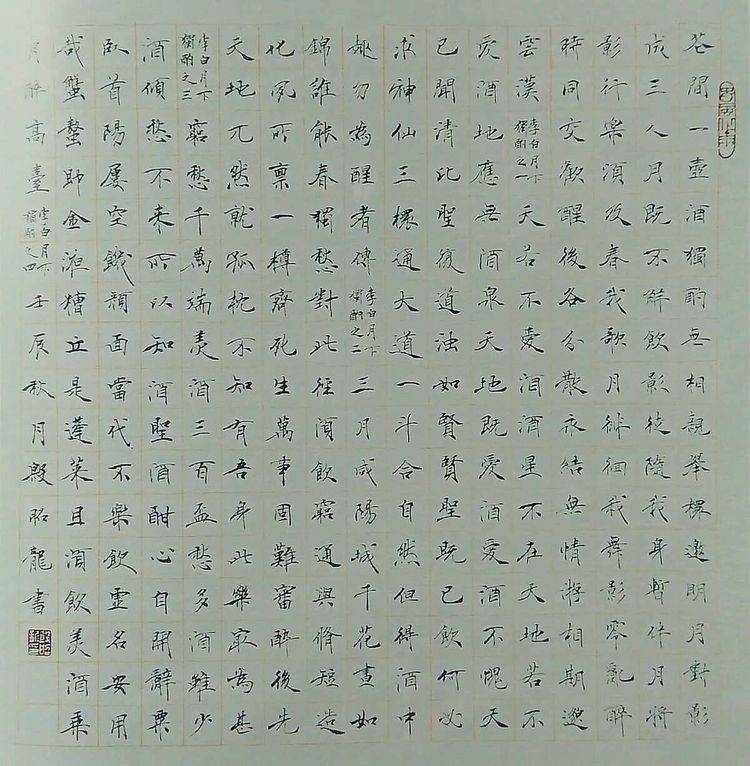 花間一壺酒獨酌無相親舉桮邀明月對影
成三人月既不解飲影徒隨我身暫伴月將
影行樂須及春我歌月徘徊我舞影零亂醉
時同交歡醒後各分散永結無情游相期邈
雲漢李白月下獨酌之一天若不愛酒酒星不在天地若不
愛酒地應無酒泉天地既愛酒愛酒不愧天
已聞清比聖復道濁如賢賢聖既已飲何必
求神仙三桮通大道一斗合自然但得酒中
趣勿為醒者傳李白月下獨酌之二三月咸陽城千花晝如
錦誰能春獨愁對此徑須飲窮通與脩短造
化夙所稟一樽齊死生萬事固難審醉後先
天地兀然就孤枕不知有吾身此樂最為甚
李白月下獨酌之三窮愁千萬端美酒三百盃愁多酒雖少
酒傾愁不來所以知酒聖酒酣心自開辭粟
臥首陽屢空餓顏回當代不樂飲虛名安用
哉蟹螯即金液糟丘是蓬萊且須飲美酒乘
月醉高臺李白月下獨酌之四壬辰秋月殷昭龍書